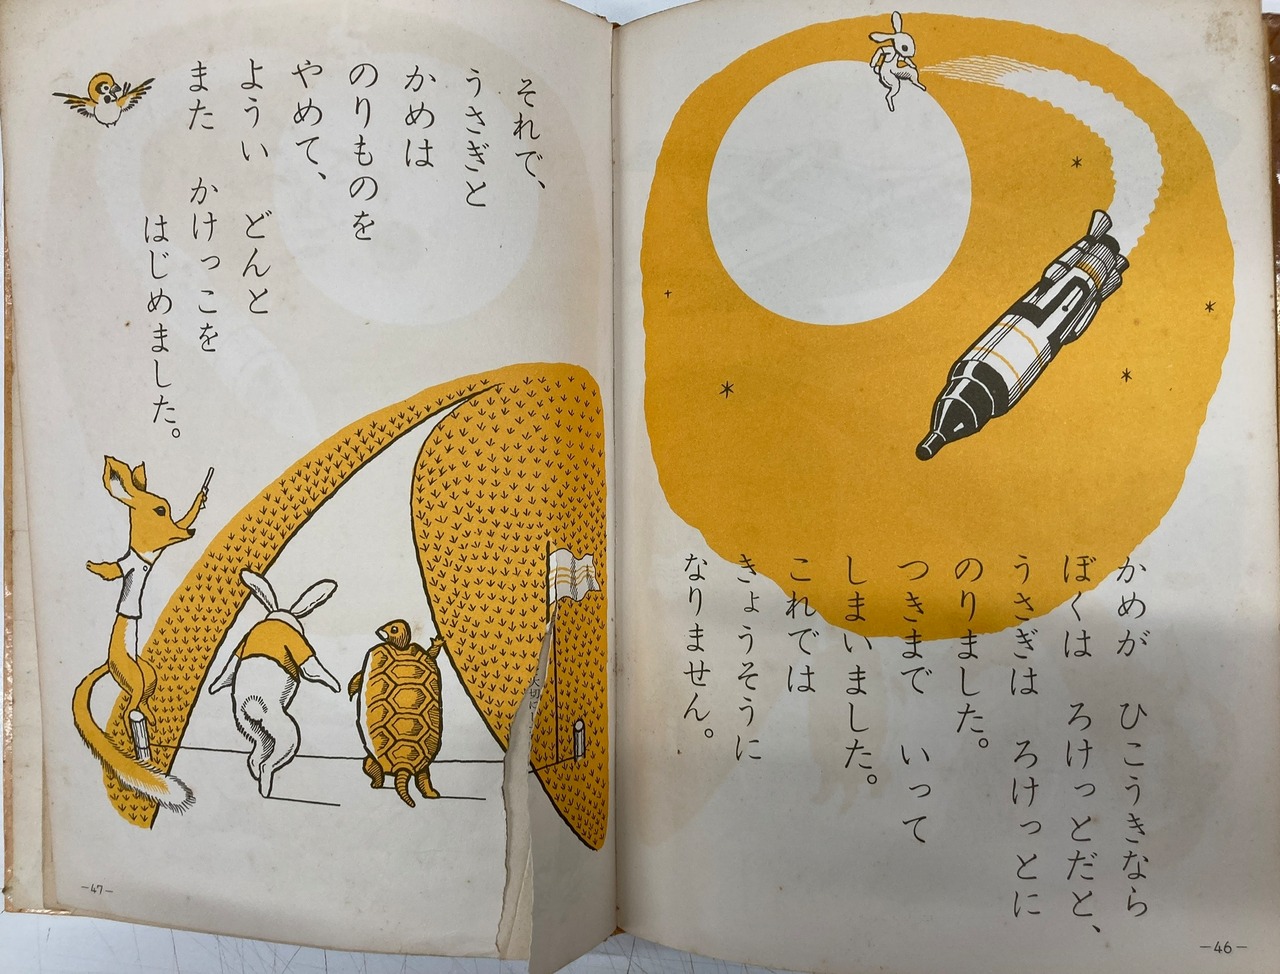 かめが ひこうきなら
ぼくは ろけっとだと、
うさぎは ろけっとに
のりました。
つきまで いって
しまいました。
これでは
きょうそうに
なりません。
—46—
それで、
うさぎと
かめは
のりものを
やめて、
ようい どんと
また かけっこを
はじめました。
大切に
—47—